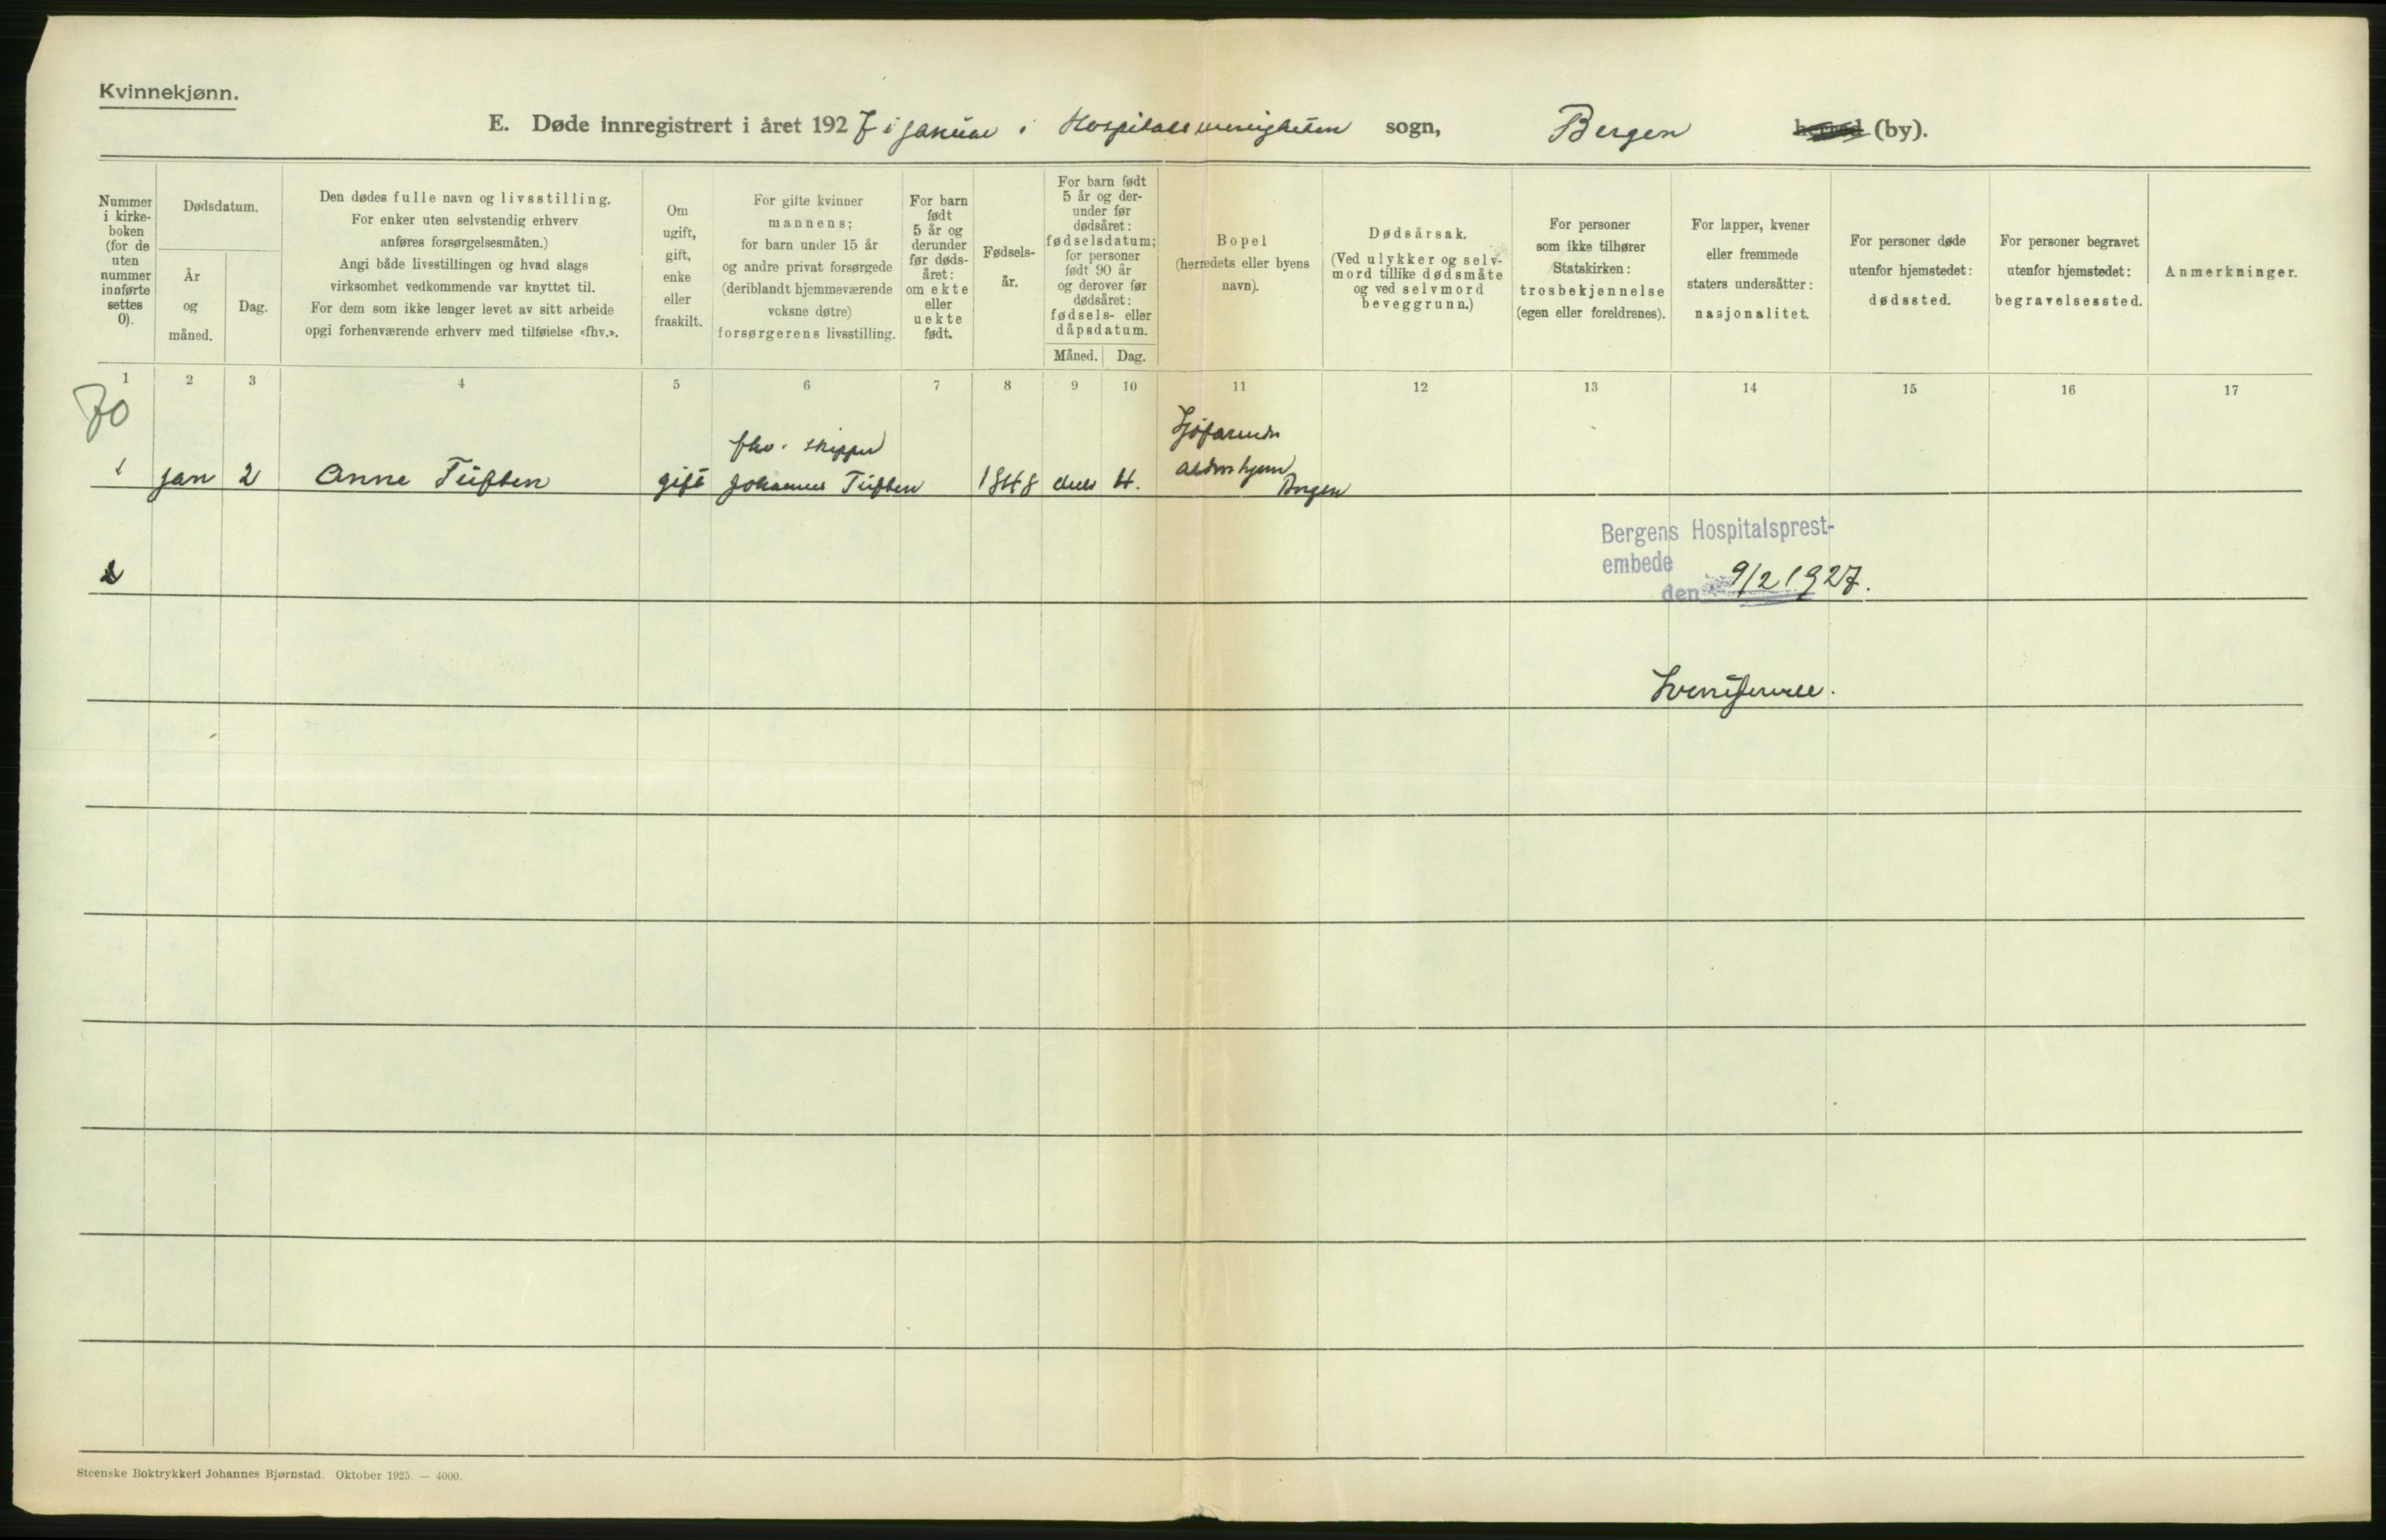 Kvinnekjønn.
E. Døde innregistrert i året 1927 i januar i Hospitalsmenigheten sogn, Bergen herred (by).
Nummer i kirke- boken (for de uten nummer innførte settes 0).
Dødsdatum.
År og måned.
Dag.
Den dødes fulle navn og livsstilling.
For enker uten selvstendig erhverv
anføres forsørgelsesmåten.)
Angi både livsstillingen og hvad slags
virksomhet vedkommende var knyttet til.
For dem som ikke lenger levet av sitt arbeide
opgi forhenværende erhverv med tilføielse «fhv.».
Om ugift, gift, enke eller fraskilt.
For gifte kvinner
mannens;
for barn under 15 år
og andre privat forsørgede
(deriblandt hjemmeværende
voksne døtre)
forsørgerens livsstilling.
For barn født 5 år og derunder før døds- året: om ekte eller uekte født.
Fødsels- år.
For barn født
5 år og der-
under før
dødsåret:
fødselsdatum;
for personer
født 90 år
og derover før
dødsåret:
fødsels- eller
dåpsdatum.
Måned. Dag.
Bopel
(herredets eller byens
navn).
Dødsårsak.
(Ved ulykker og selv-
mord tillike dødsmåte
og ved selvmord
beveggrunn.)
For personer
som ikke tilhører
Statskirken:
trosbekjennelse
(egen eller foreldrenes).
For lapper, kvener
eller fremmede
staters undersåtter:
nasjonalitet.
For personer døde
utenfor hjemstedet:
dødssted.
For personer begravet
utenfor hjemstedet:
begravelsessted.
Anmerkninger.
1 2 3 4 5 6 7 8 9 10 11 12 13 14 15 16 17
70
fhv. skipper
1 jan 2 Anne Tuften gift Johannes Tuften 1848 4. aldershjem Bergen
2
Bergens Hospitalsprest-
embede
den 9/2 1927.
Steenske Boktrykkeri Johannes Bjørnstad. Oktober 1925. — 4000.